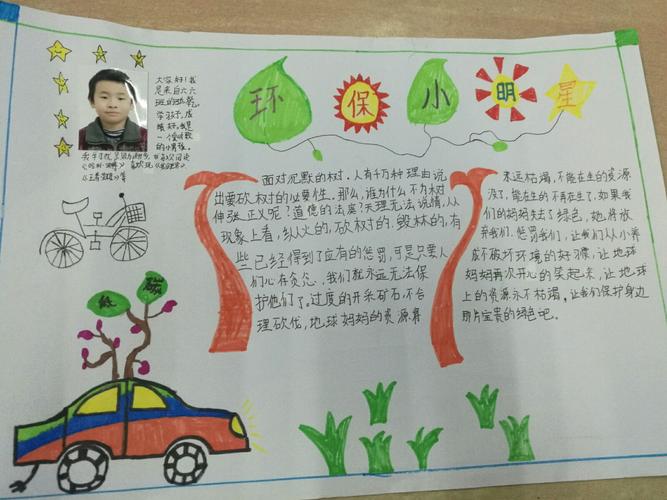 环保小明星
大家好！我
是来自六六
班的
学孩子，成
绩好。我是
一个爱读书
的小男孩。
低碳
面对沉默的树．人有千万种理由说
出要砍树的必要性．那么，谁为什么不为树
伸张正义呢？道德的法度？天理无法说情，从
现象上看，纵火的，砍树的．毁林的，有
些已经得到了应有的惩罚，可是只要人
们心存贪念，我们就永远无法保
护他们了。过度的开采矿石，不合
理砍伐，地球妈妈的资源将
来远枯竭，不能在生的资源
没了，能在生的不再在生了．如果我
们的妈妈失去了绿色，她将放
弃我们．惩罚我们，让我们从小养
成不破坏环境的好习惯，让地球
妈妈再次开心的笑起来，让地球
上的资源永不枯竭．让我们保护身边
那片宝贵的绿色吧。